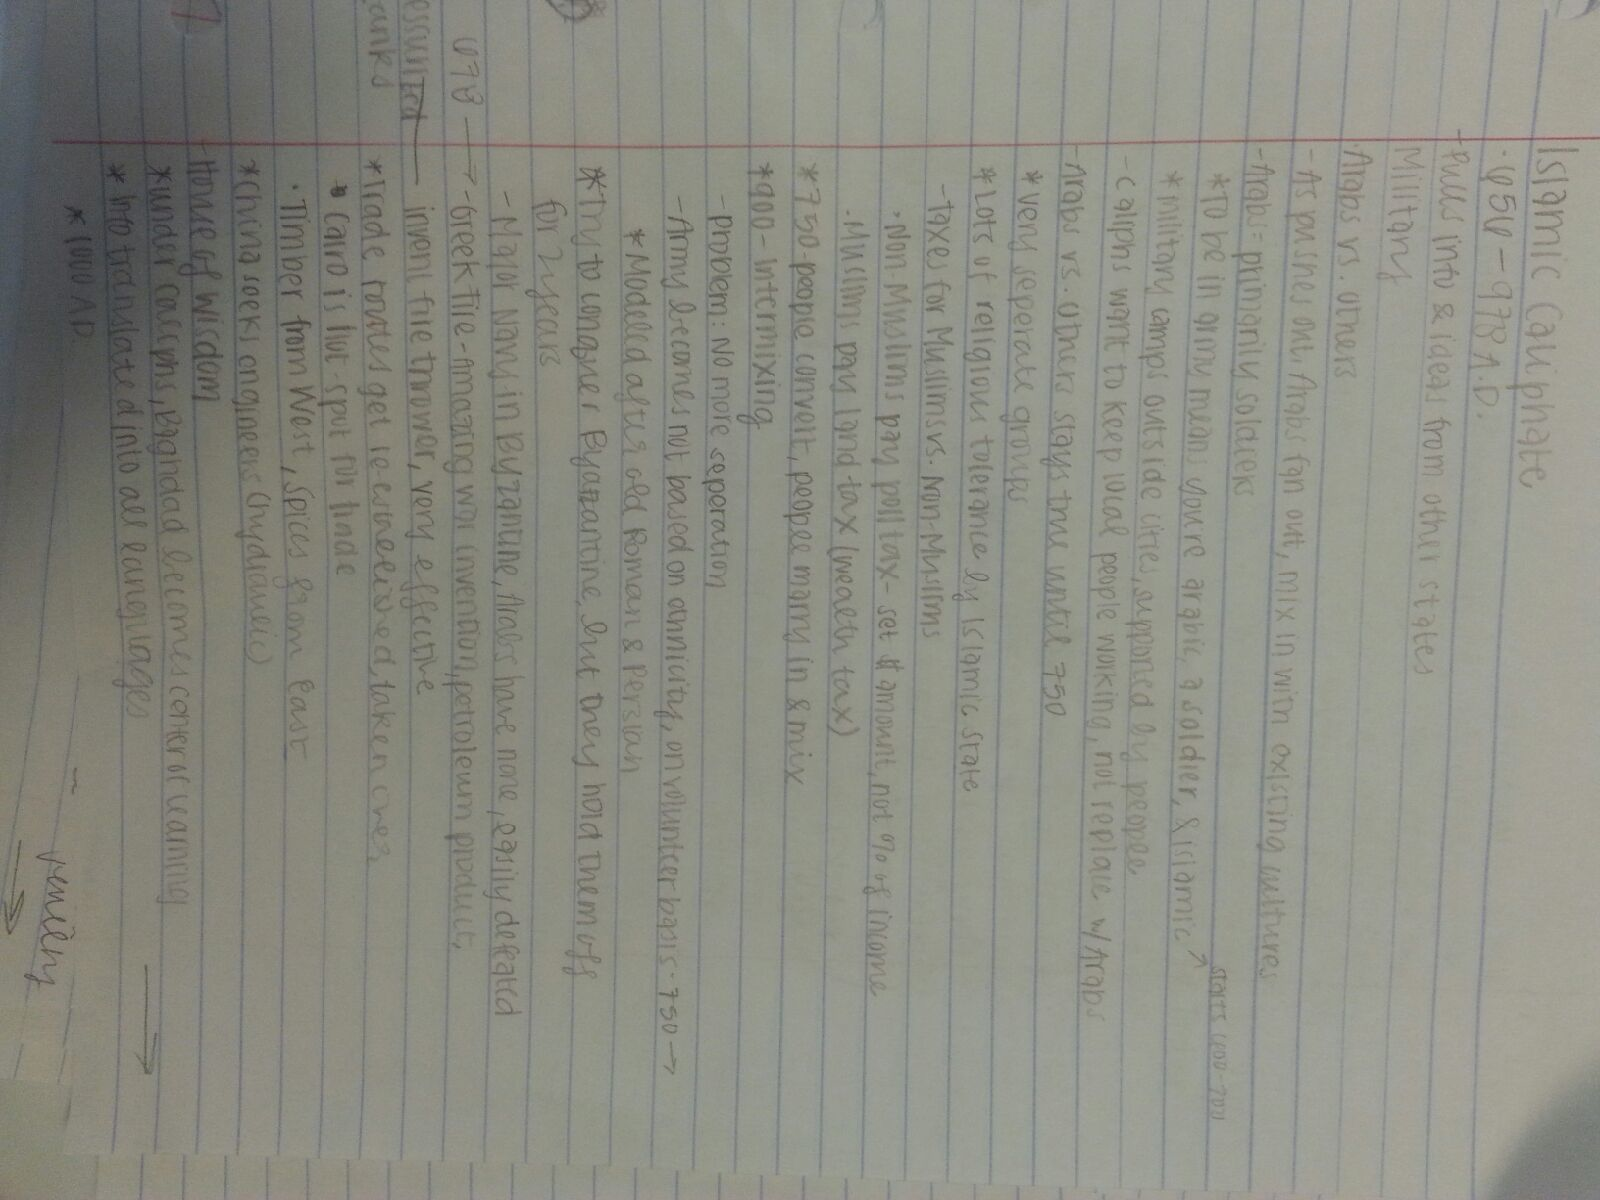 Islamic Caliphate
· 650 – 978 A.D.
- Pulls info & ideas from other states
Military
· Arabs vs. others
- As pushes out Arabs fan out, mix in with existing cultures
- Arabs = primarily soldiers
* To be in army means youre arabic, a soldier, & islamic ↗ starts 600-700
* military camps outside cities, supported by people
- Caliphs want to keep local people working, not replace w/ Arabs
- Arabs vs. others stays true until 750
* very seperate groups
* Lots of religious tolerence by Islamic state
- taxes for Muslims vs. Non-Muslims
· Non Muslims pay poll tax - set $ amount, not % of income
· Muslims pay land tax (wealth tax)
* 750 - people convert, people marry in & mix
* 900 - intermixing
- problem: No more separation
- Army becomes not based on ethnicity, on volunteer basis - 750 →
* Modeled after old Roman & Persian
* Try to conquer Byzantine, but they hold them off
for 2 years
- Major Navy in Byzantine, Arabs have none, easily defeated
678 → - Greek File - Amazing war invention, petroleum product,
invent file thrower, very effective
* Trade routes get reestablished, taken over,
· Cairo is hot-spot for trade
· Timber from West, spices from East
* China seeks engineers (hydraulic)
- House of wisdom
* under caliphs, Baghdad becomes center of learning
* into translated into all languages
* 1000 A.D.